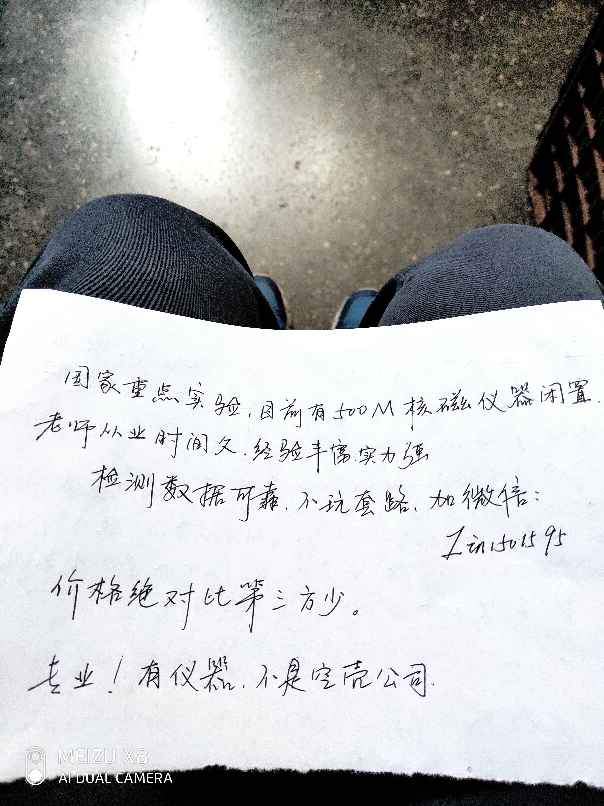 国家重点实验,目前有500M核磁仪器闲置.
老师从业时间久.经验丰富实力强
检测数据可靠.不玩套路.加微信:
价格绝对比第三方少。
专业!有仪器.不是空壳公司.
MEIZU X8
AI DUAL CAMERA